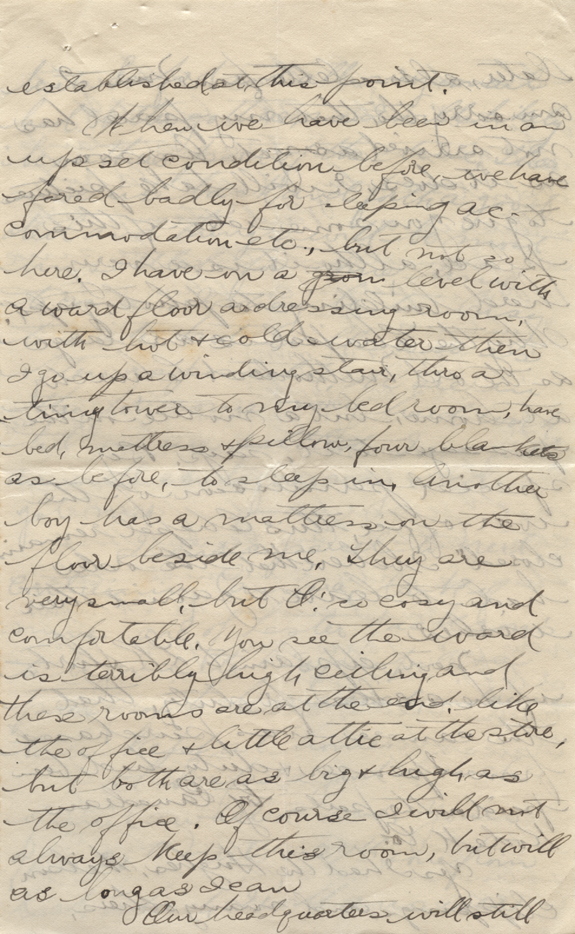 established at this point.
When we have been in an
up set condition before, we have
fared badly for sleeping ac-
commodation etc., but not so
here. I have on a level with
a ward floor a dressing room,
with hot & cold water then
I go up a winding stair, thro a
tiny tower to my bed room, have
bed, mattress & pillow, four blankets
as before, to sleep in. Another
boy has a mattress on the
floor beside me. They are
very small, but O! so cosy and
comfortable. You see the ward
is terribly high ceiling and
these rooms are at the end, like
the office & little attic at the store,
but both are as big & high as
the office. Of course I will not
always keep this room, but will
as long as I can
Our headquarters will still